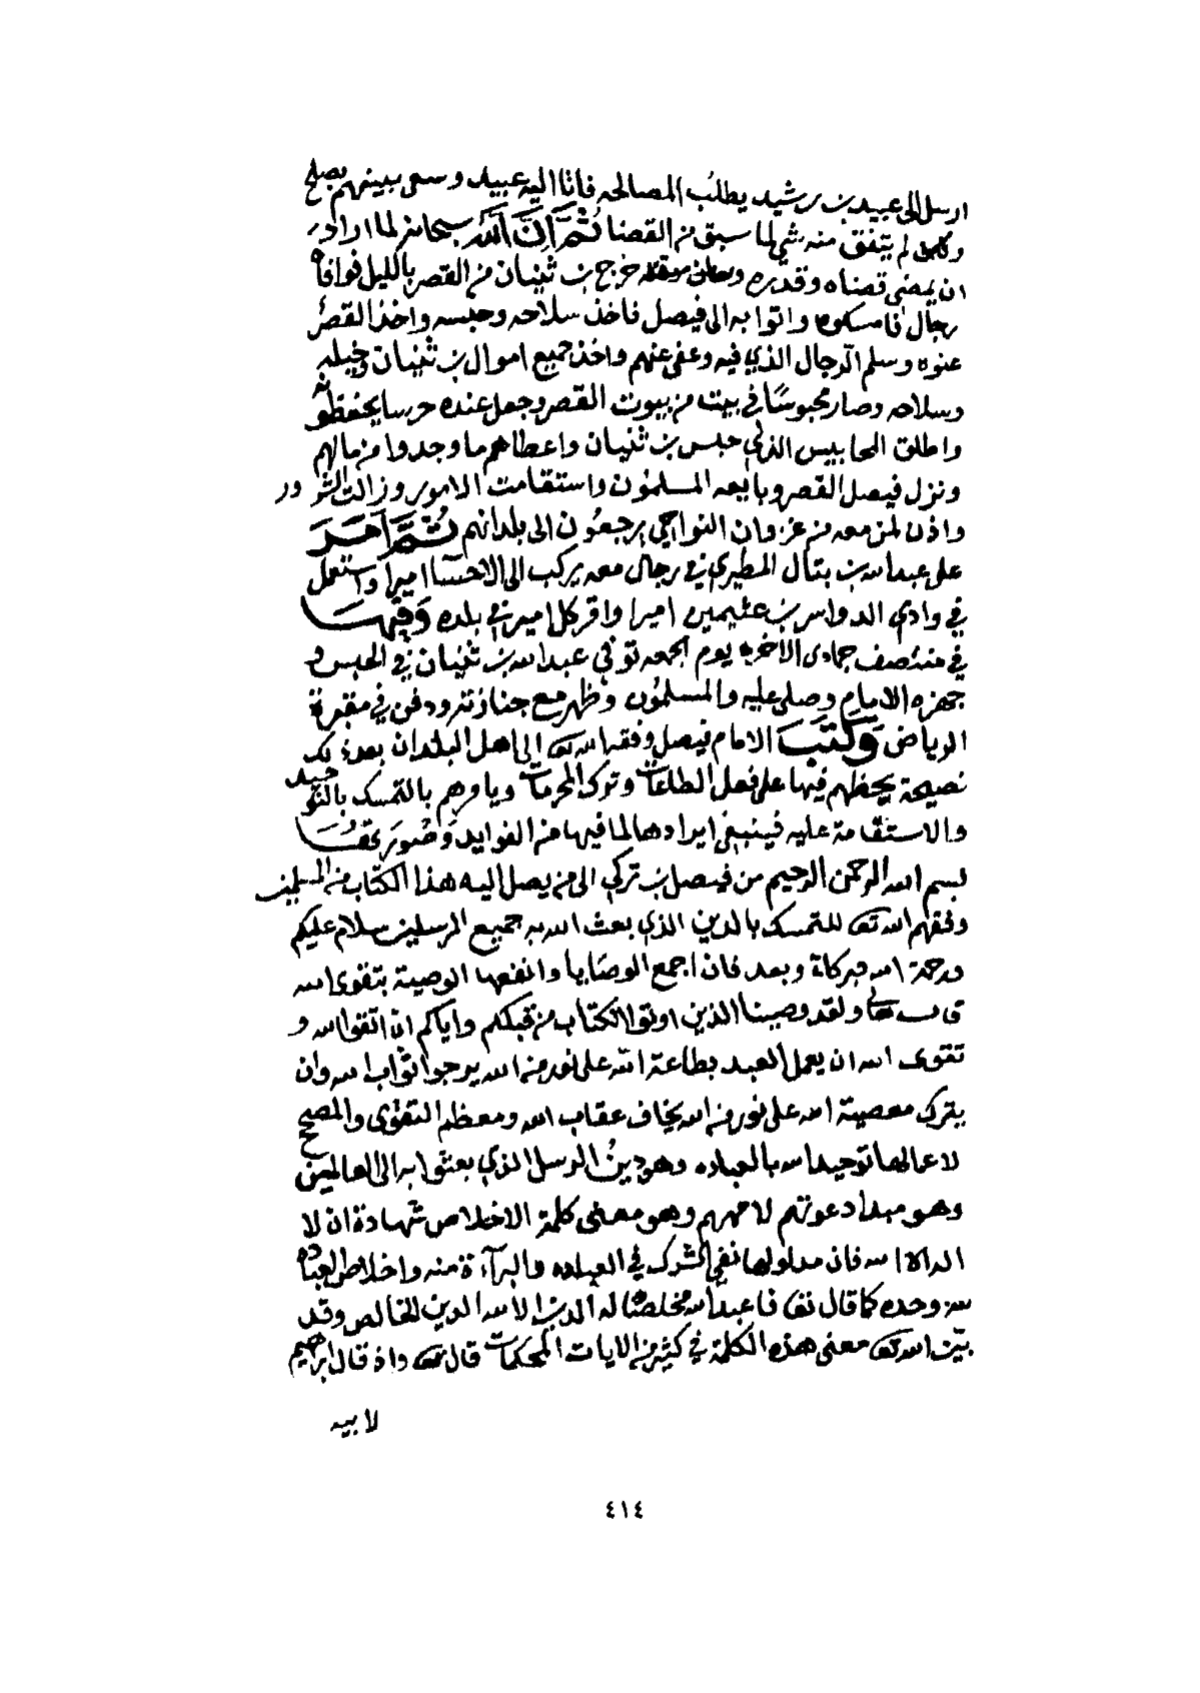 ارسل الى عبيد بن رشيد يطلب المصالحه فاتا اليه عبيد وسعى بينهم بصلح
ولكن لم يتفق منه شي لما سبق من القضا ثم ان الله سبحانه لما اراد
ان يمضي قضاه وقدره خرج بن ثنيان من القصر بالليل فوافاه
رجال فامسكوه واتوا به الى فيصل فاخذ سلاحه وحبسه واخذ القصر
عنوه وسلم الرجال الذي فيه وعفى عنهم واخذ جميع اموال بن ثنيان وخيله
وسلاحه وصار محبوسًا في بيت من بيوت القصر وجعل عنده حرسا يحفظونه
واطلق المحابيس الذي حبس بن ثنيان واعطاهم ما وجدوا من مالهم
ونزل فيصل القصر وبايعه المسلمون واستقامت الامور وزالت الشرور
واذن لمن معه من غزوان النواحي يرجعون الى بلدانهم ثم امر
على عبدالله بن بتال المطيري في رجال معه يركب الى الاحسا اميرا واستعمل
في وادي الدواسر بن عثيمين اميرا واقر كل امير في بلده وفيها
في منتصف جمادى الاخره يوم الجمعه توفي عبدالله بن ثنيان في الحبس و
جهزه الامام وصلى عليه والمسلمون وظهر مع جنازته ودفن في مقبرة
الرياض وكتب الامام فيصل وفقه الله تعالى الى اهل البلدان بعد ذلك
نصيحة يحظهم فيها على فعل الطاعات وترك المحرمات ويامرهم بالتمسك بالتوحيد
والاستقامة عليه فينبغي ايرادها لما فيها من الفوايد وصورتها
بسم الله الرحمن الرحيم من فيصل بن تركي الى من يصل اليه هذا الكتاب من المسلمين
وفقهم الله تعالى للتمسك بالدين الذي بعث الله به جميع المرسلين سلام عليكم
ورحمة الله وبركاته وبعد فان اجمع الوصايا وانفعها الوصية بتقوى الله
قال تعالى ولقد وصينا الذين اوتوا الكتاب من قبلكم واياكم ان اتقوا الله و
تقوى الله ان يعمل العبد بطاعة الله على نور من الله يرجوا ثواب الله وان
يترك معصية الله على نور من الله يخاف عقاب الله ومعظم التقوى والمصحح
لاعمالها توحيد الله بالعباده وهو دين الرسل الذي بعثوا به الى العالمين
وهو مبدا دعوتهم لاممهم وهو معنى كلمة الاخلاص شهادة ان لا
اله الا الله فان مدلولها نفي الشرك في العباده والبرآءة منه واخلاص العباده
لله وحده كما قال تعالى فاعبد الله مخلصًا له الدين الا لله الدين الخالص وقد
بيّن الله تعالى معنى هذه الكلمة في كثير من الايات المحكمات قال تعالى واذ قال ابراهيم
لابيه
٤١٤